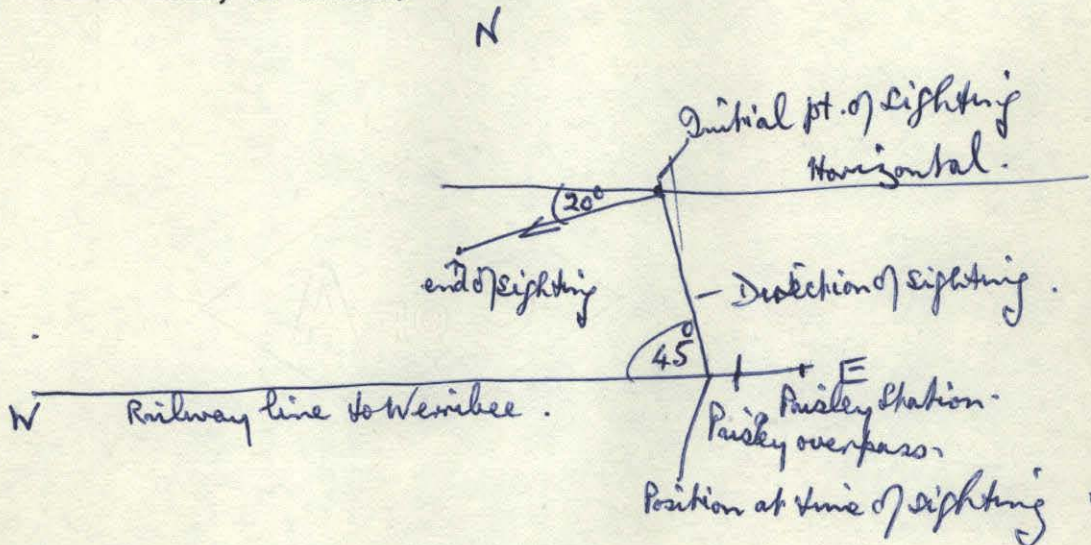 N
Initial pt. of Sighting
Horizontal.
20°
end of Sighting
Direction of Sighting.
45°
W Railway line to Werribee. E
Paisley Station.
Paisley overpass.
Position at time of sighting